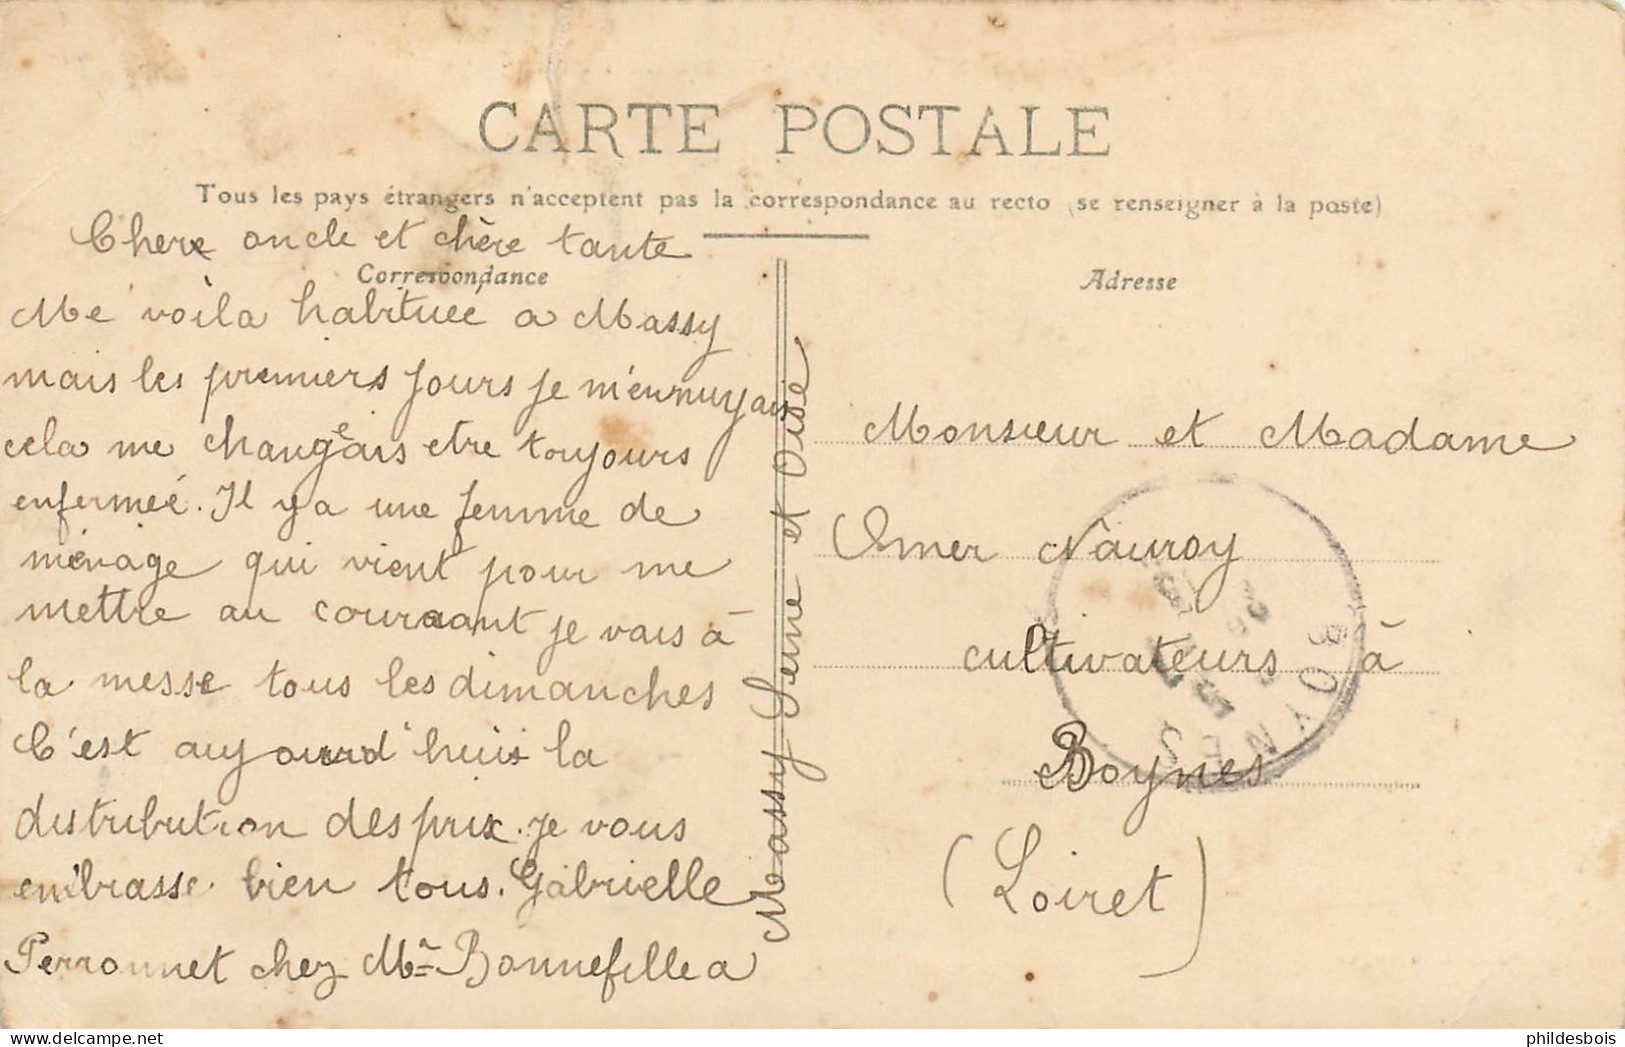 CARTE POSTALE
Tous les pays étrangers n'acceptent pas la correspondance au recto (se renseigner à la poste)
Correspondance
Cherx oncle et chère tante
Me voila habituée a Massy
mais les premiers jours je m'ennuyais
cela me changeais etre toujours
enfermeé. Il y a une femme de
ménage qui vient pour me
mettre au couraant je vais à
la messe tous les dimanches
C'est aujourd'huis la
distribution des prix. je vous
embrasse bien tous. Gabrielle
Perronnet chez Mme Bonnefille a
Massy Seine et Oise
Adresse
Monsieur et Madame
Omer Nauroy
cultivateurs à
Boynes
(Loiret)
BOYNES
phildesbois